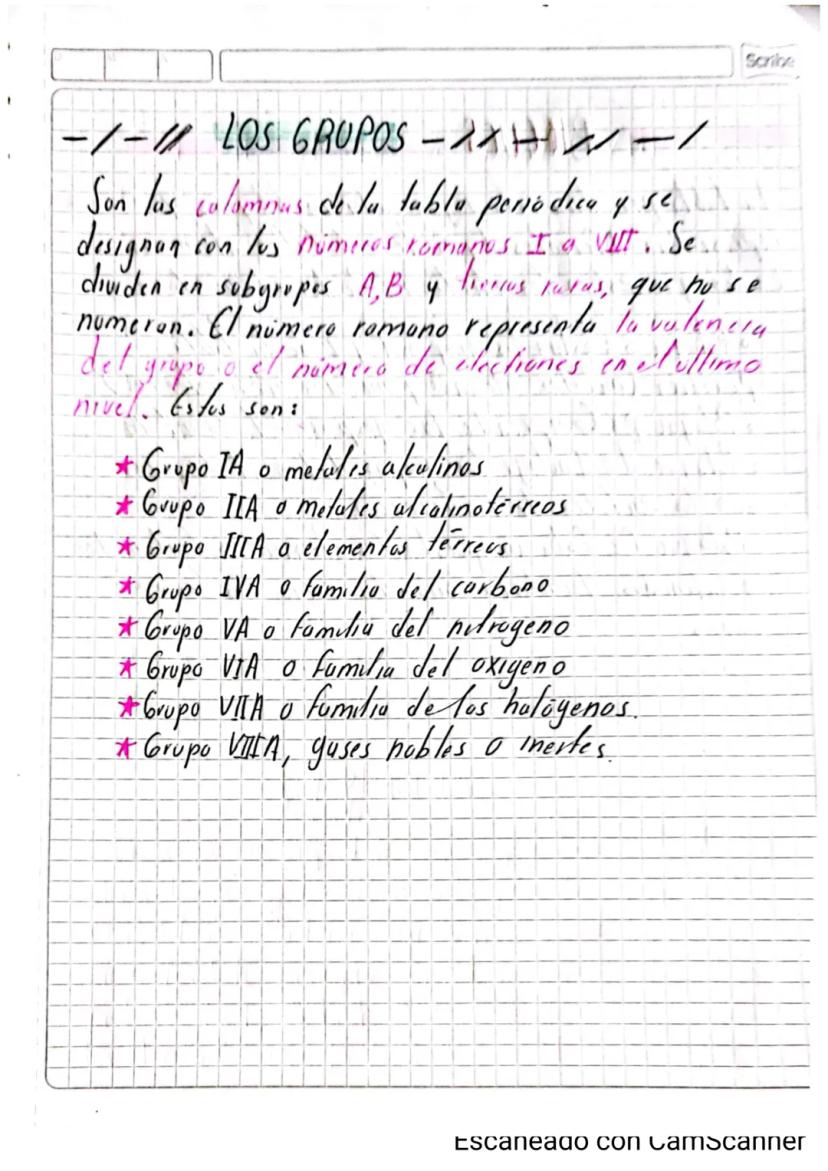 Scribe
LOS GRUPOS
Son las columnas de la tabla periódica y se
designan con los números romanos I a VIII. Se
dividen en subgrupos A,B y tierras raras, que no se
numeran. El número romano representa la valencia
del grupo o el número de electrones en el último
nivel. Estos son:
★ Grupo IA o metales alcalinos
★ Grupo IIA o metales alcalinotérreos
★ Grupo IIIA o elementos térreos
★ Grupo IVA o familia del carbono
★ Grupo VA o familia del nitrogeno
★ Grupo VIA o familia del oxigeno
★ Grupo VIIA o familia de los halógenos.
★ Grupo VIIIA, gases nobles o inertes.
Escaneado con CamScanner